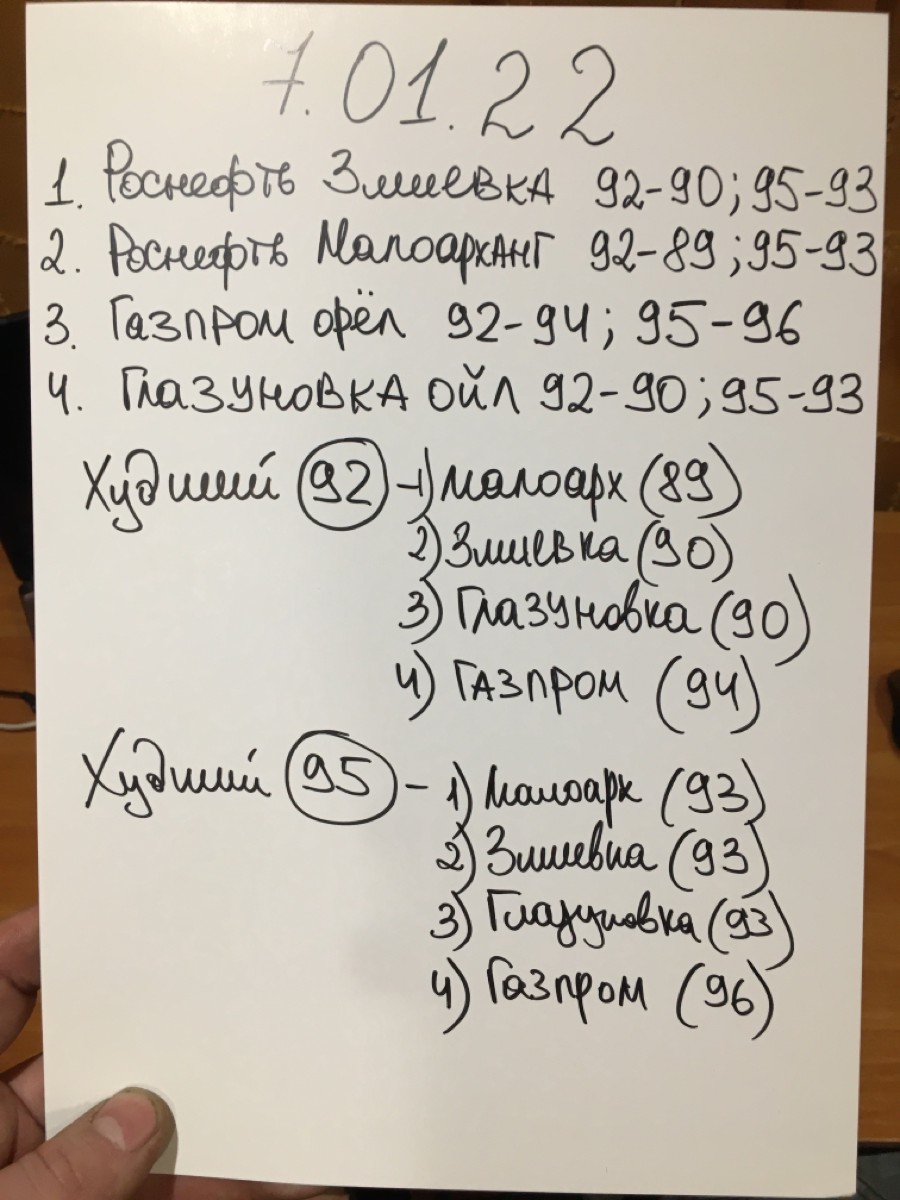 7.01.22
1. Роснефть Змиевка 92-90; 95-93
2. Роснефть Малоарханг 92-89; 95-93
3. Газпром орёл 92-94; 95-96
4. Глазуновка ойл 92-90; 95-93
Худший 92 - 1) малоарх (89)
2) Змиевка (90)
3) Глазуновка (90)
4) Газпром (94)
Худший 95 - 1) Малоарх (93)
2) Змиевка (93)
3) Глазуновка (93)
4) Газпром (96)